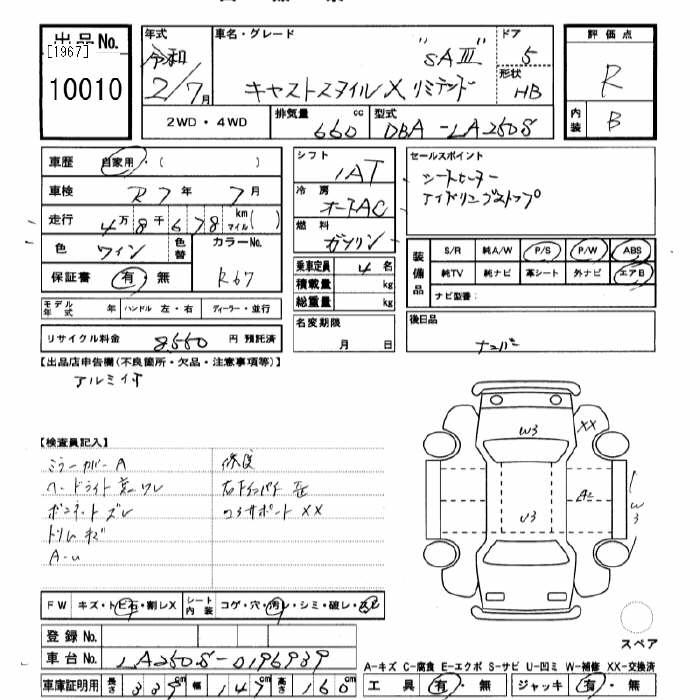 出品No.
[1967]
10010
年式
令和
2/7月
車名・グレード
"SAⅢ"
キャストスタイルX リミテッド
ドア
5
形状
HB
2WD・4WD
排気量
660 cc
型式
DBA-LA250S
評価点
R
内装
B
車歴 自家用・( )
車検 R7年 7月
走行 4万8千678 km マイル( )
色 ワイン
色替
カラーNo.
R67
保証書 有・無
モデル年式 年
ハンドル 左・右
ディーラー・並行
リサイクル料金 8560 円 預託済
シフト
IAT
冷房
オートAC
燃料
ガソリン
乗車定員 4名
積載量 kg
総重量 kg
名変期限
月 日
セールスポイント
シートヒーター
アイドリングストップ
装備品
S/R 純A/W P/S P/W ABS
純TV 純ナビ 革シート 外ナビ エアB
ナビ型番:
後日品
ナンバー
【出品店申告欄(不良箇所・欠品・注意事項等)】
【検査員記入】
ミラーカバーA
ボンネットズレ
トリムキズ
A-u
修復
コアサポートXX
XX
W3
A2
U3
W3
FW キズ・トビ石・割レX
シート内装 コゲ・穴・汚レ・シミ・破レ・スレ
登録No.
車台No. LA250S-0196939
車庫証明用 長さ 339cm 幅 147cm 高さ 160cm
スペア
A-キズ C-腐食 E-エクボ S-サビ U-凹ミ W-補修 XX-交換済
工具 有・無 ジャッキ 有・無